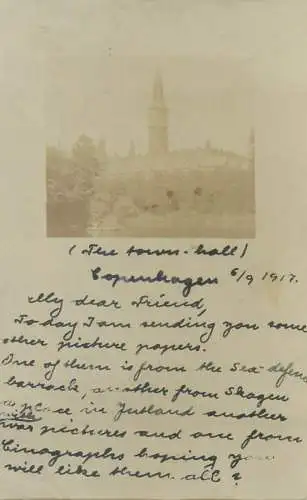 (The town-hall)
Copenhagen 6/9 1917.
My dear Friend,
To day I am sending you some
other picture papers.
One of them is from the Sea-defen
barrack, another from Skagen
a place in Jutland another
with war pictures and one from
Cinographs hoping you
will like them all?